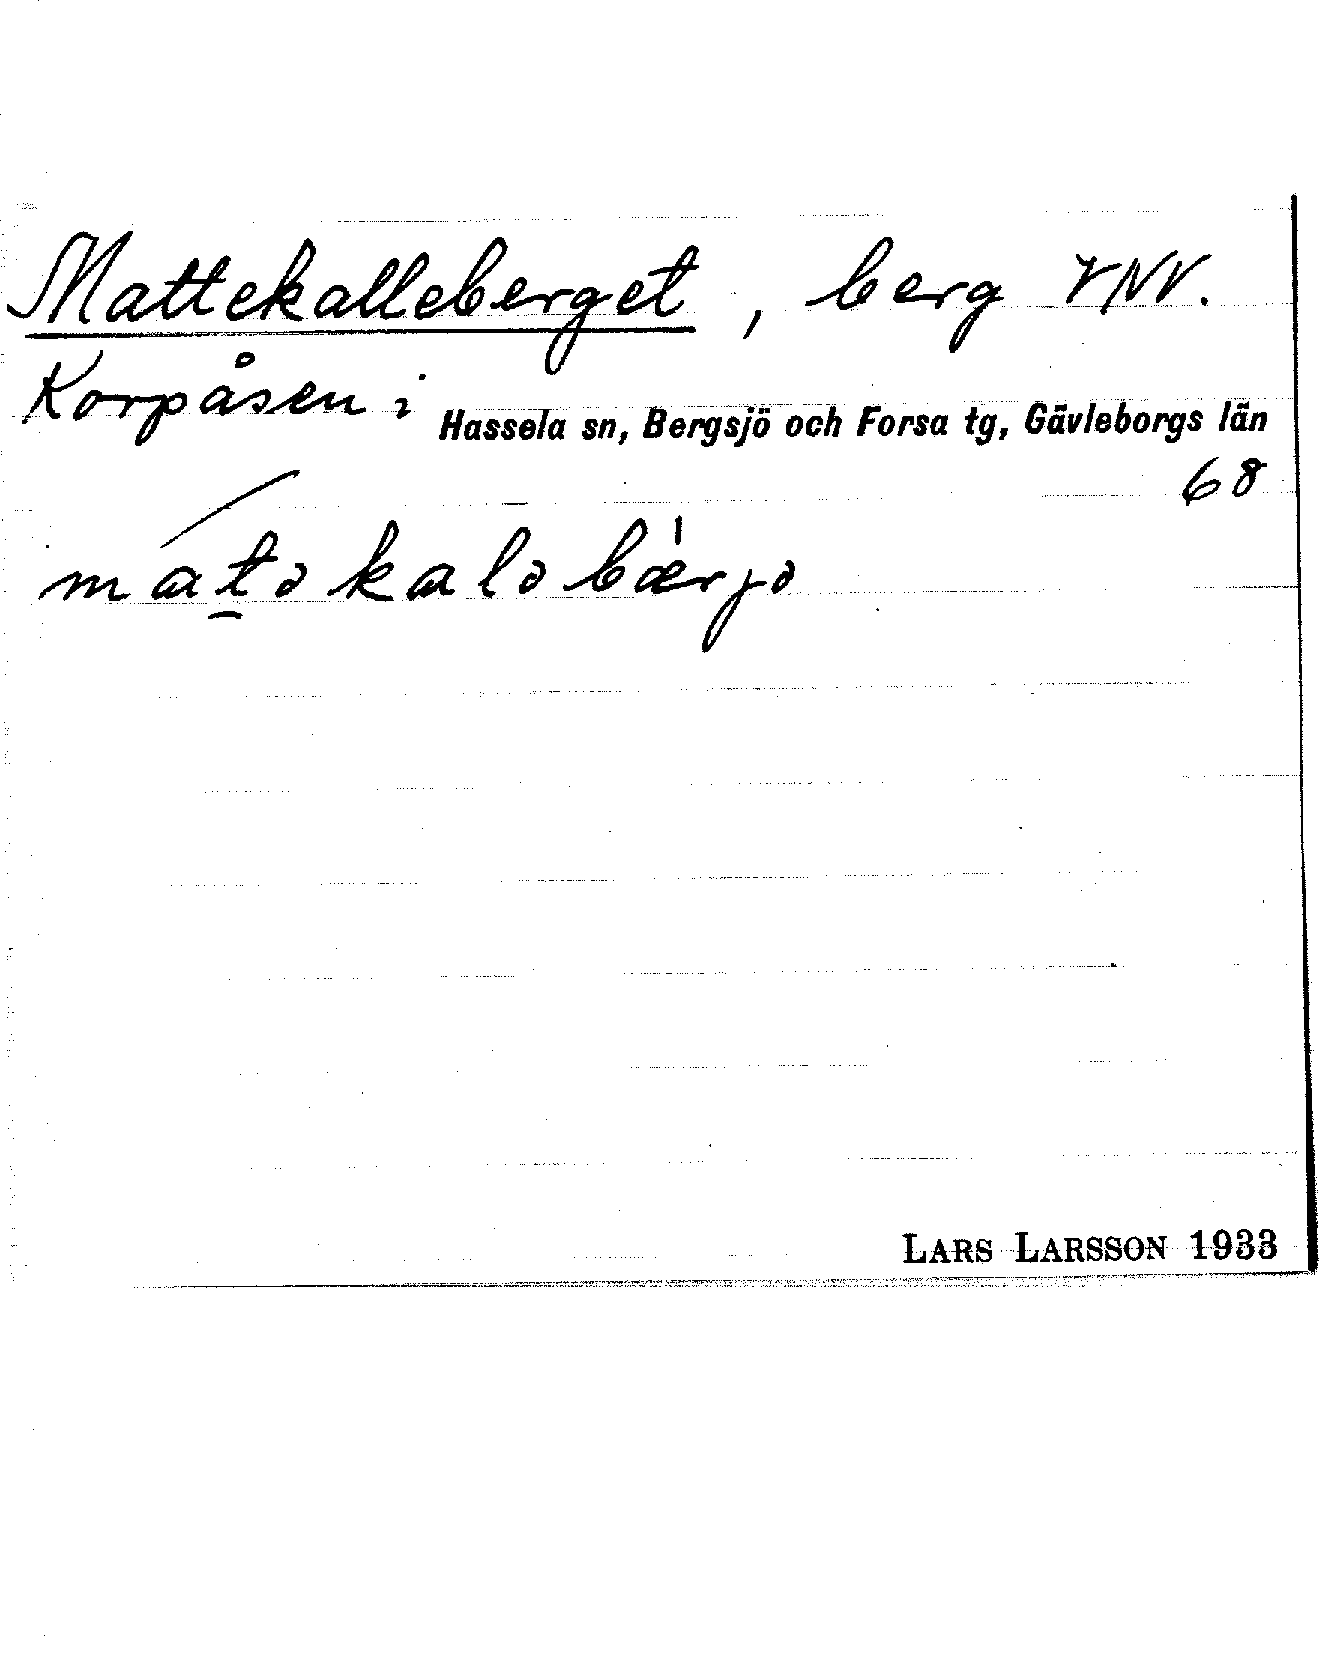 Mattekalleberget, berg VNV.
Korpåsen i Hassela sn, Bergsjö och Forsa tg, Gävleborgs län
68
matəkaləbærjə
LARS LARSSON 1933